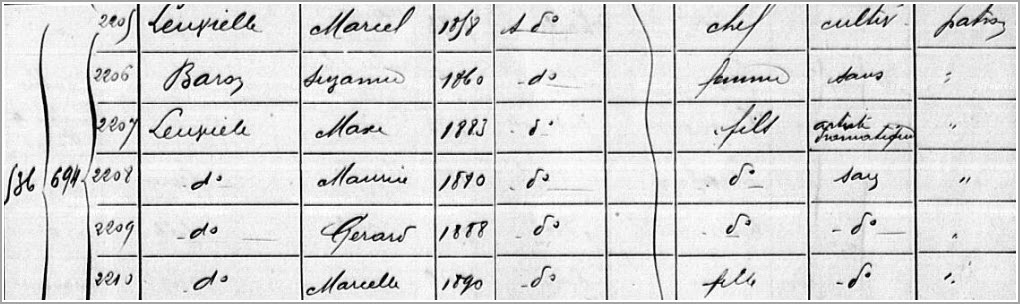 2205 Leuvielle Marcel 1858 do chef cultiv patron
2206 Baron Suzanne 1860 do femme sans "
2207 Leuvielle Maxe 1883 do fils artiste dramatique "
536 694 2208 do Maurice 1880 do do sans "
2209 do Gérard 1888 do do do "
2210 do Marcelle 1890 do fille do "